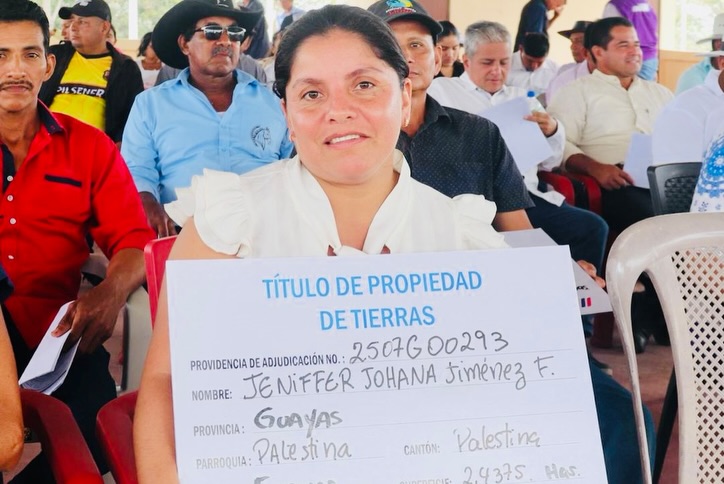 PILSENER
TÍTULO DE PROPIEDAD
DE TIERRAS
PROVIDENCIA DE ADJUDICACIÓN NO.: 2507G00293
NOMBRE: JENiFFER JOHANA Jiménez F.
PROVINCIA: GUAYAS
PARROQUIA: PALESTINA CANTÓN: Palestina
SUPERFICIE: 2,4375 Has.